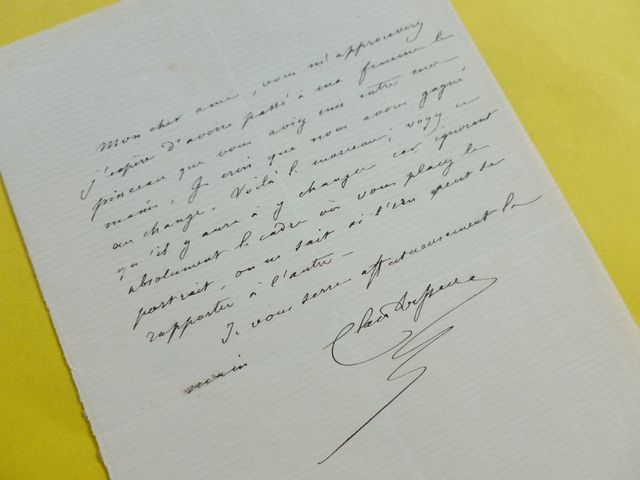 Mon cher ami, vous m'approuverez
j'espère d'avoir passé à ma femme le
pinceau que vous aviez mis entre mes
mains. Je crois que nous avons gagné
au change. Voilà le morceau; voyez ce
qu'il y aura à y changer car ignorant
absolument le cadre où vous placez le
portrait, on ne sait si l'un peut se
rapporter à l'autre —
Je vous serre affectueusement la
main